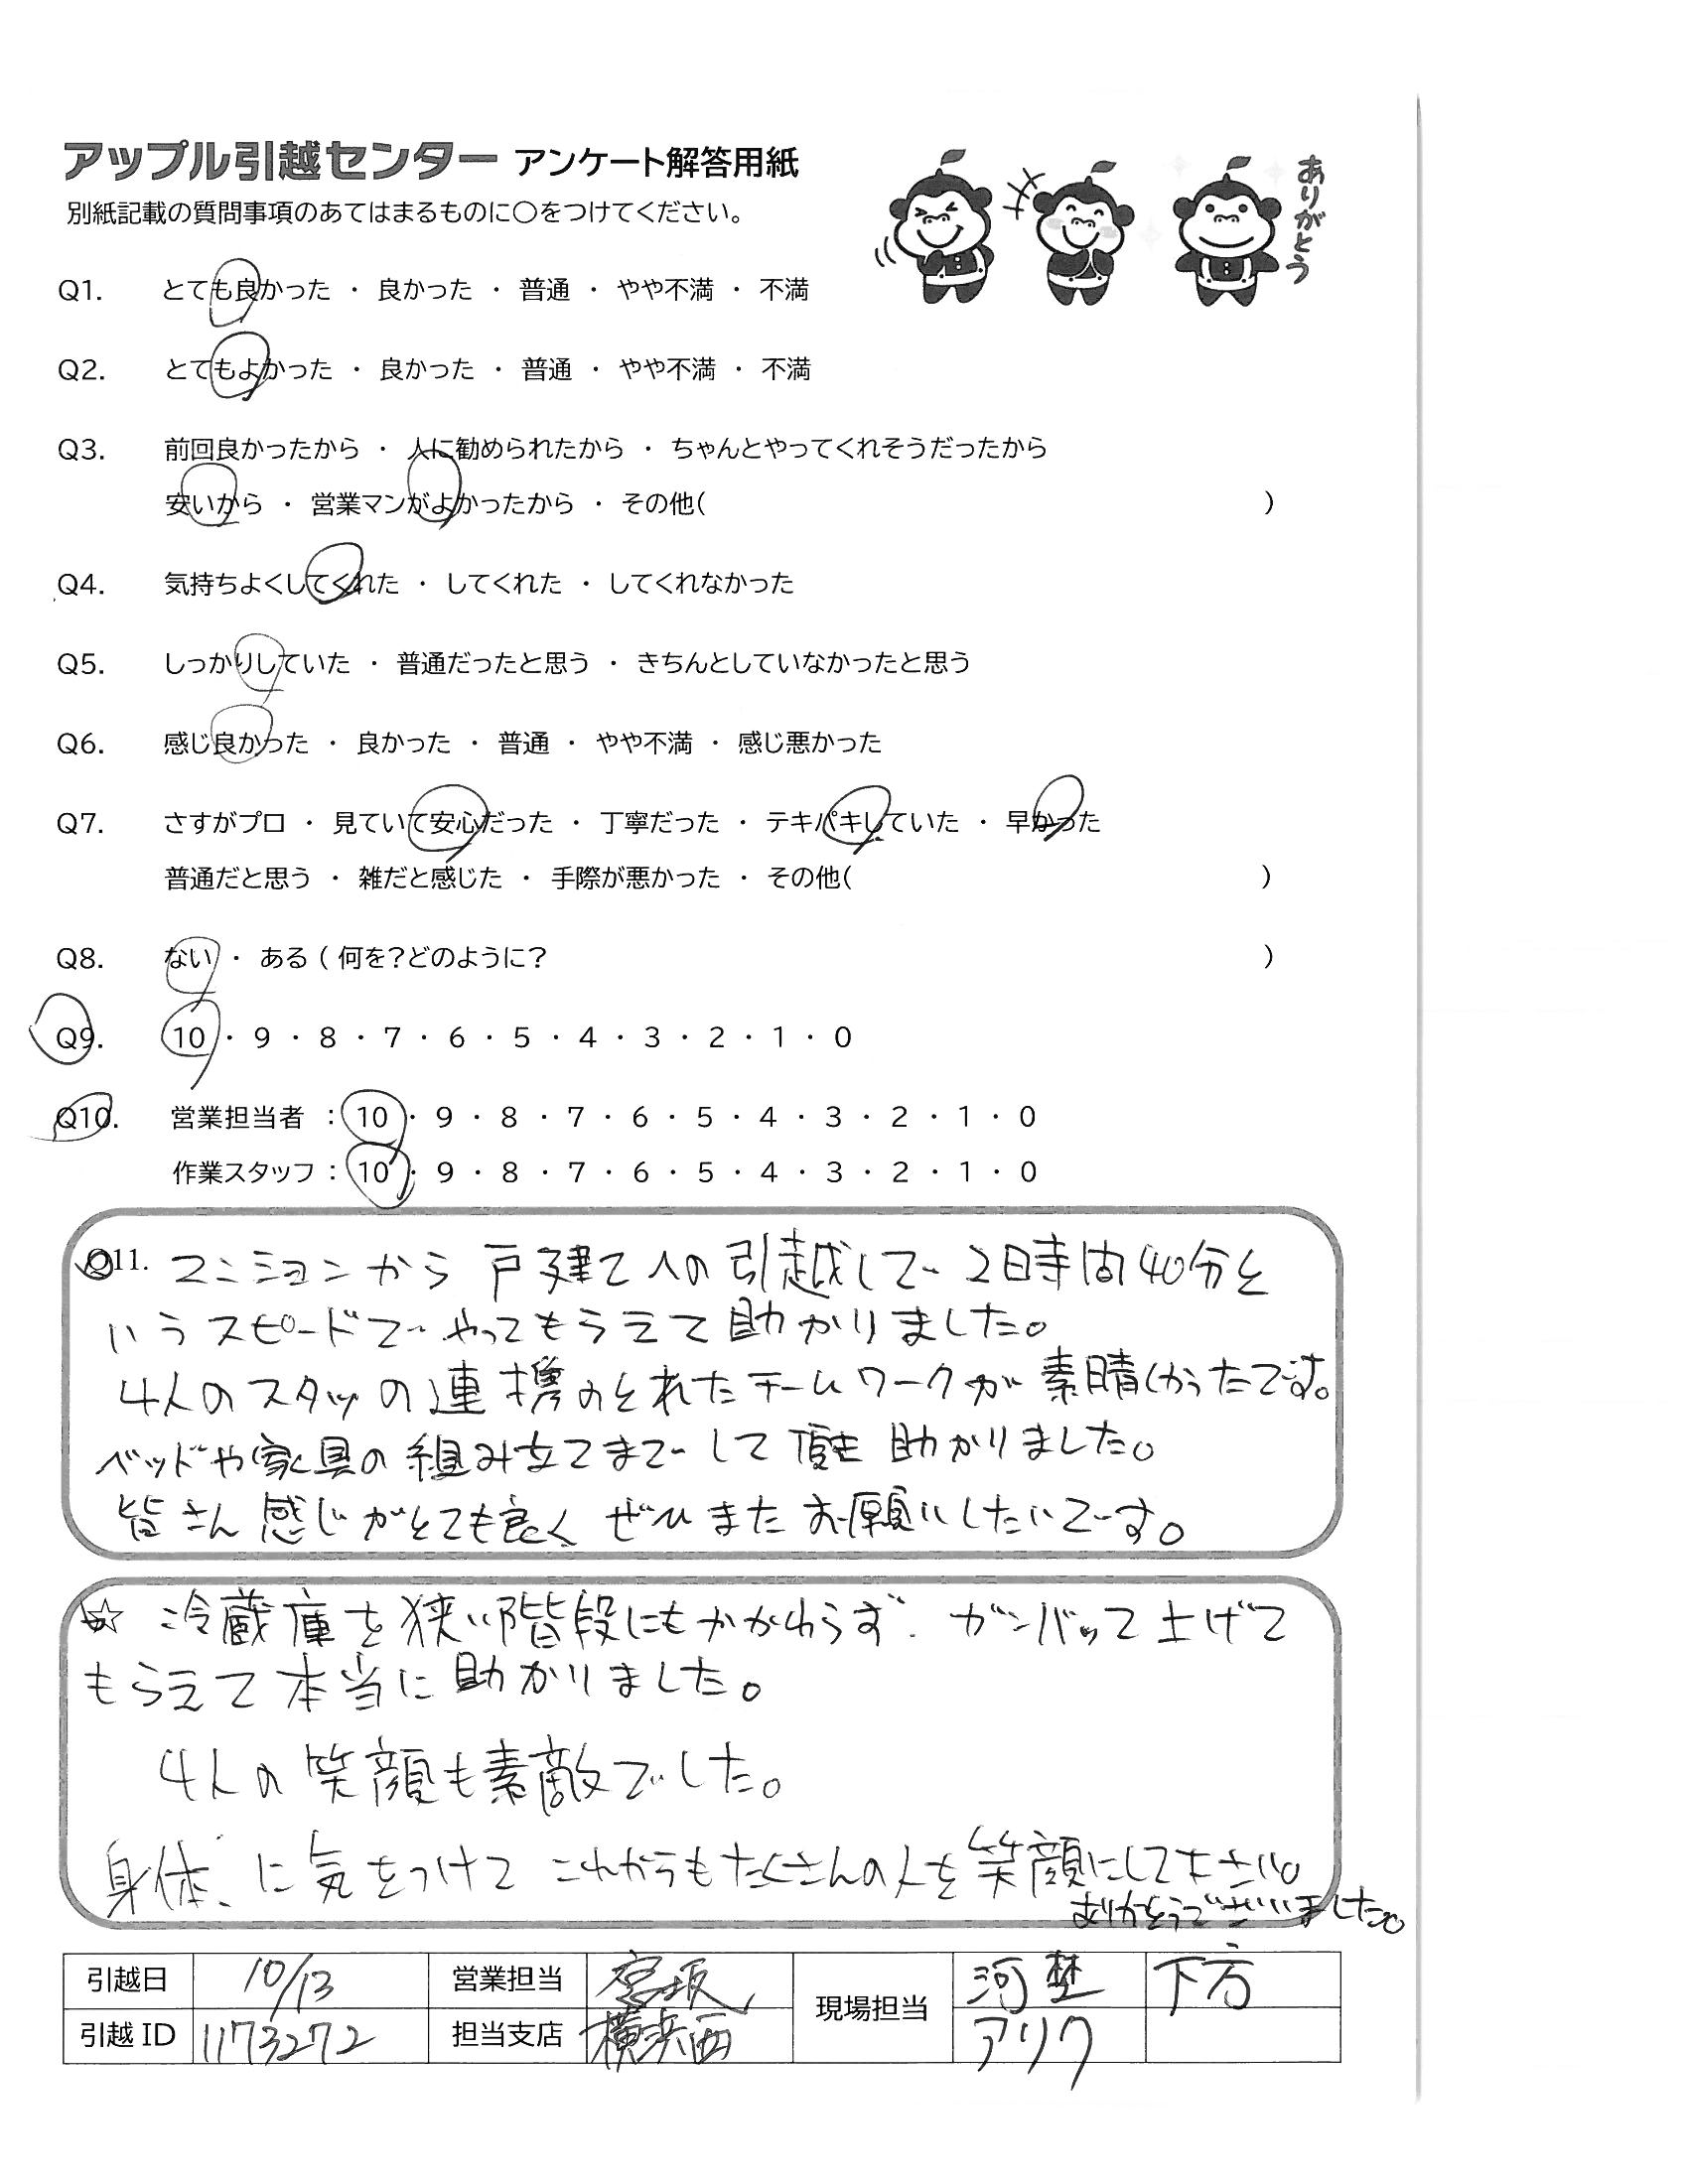 アップル引越センター アンケート解答用紙
別紙記載の質問事項のあてはまるものに〇をつけてください。
ありがとう
Q1. とても良かった ・ 良かった ・ 普通 ・ やや不満 ・ 不満
Q2. とてもよかった ・ 良かった ・ 普通 ・ やや不満 ・ 不満
Q3. 前回良かったから ・ 人に勧められたから ・ ちゃんとやってくれそうだったから
安いから ・ 営業マンがよかったから ・ その他( )
Q4. 気持ちよくしてくれた ・ してくれた ・ してくれなかった
Q5. しっかりしていた ・ 普通だったと思う ・ きちんとしていなかったと思う
Q6. 感じ良かった ・ 良かった ・ 普通 ・ やや不満 ・ 感じ悪かった
Q7. さすがプロ ・ 見ていて安心だった ・ 丁寧だった ・ テキパキしていた ・ 早かった
普通だと思う ・ 雑だと感じた ・ 手際が悪かった ・ その他( )
Q8. ない ・ ある ( 何を？どのように？ )
Q9. 10 ・ 9 ・ 8 ・ 7 ・ 6 ・ 5 ・ 4 ・ 3 ・ 2 ・ 1 ・ 0
Q10. 営業担当者 : 10 ・ 9 ・ 8 ・ 7 ・ 6 ・ 5 ・ 4 ・ 3 ・ 2 ・ 1 ・ 0
作業スタッフ : 10 ・ 9 ・ 8 ・ 7 ・ 6 ・ 5 ・ 4 ・ 3 ・ 2 ・ 1 ・ 0
Q11. マンションから戸建てへの引越しで2日時間40分と
いうスピードでやってもらえて助かりました。
4人のスタッの連携のとれたチームワークが素晴しかったです。
ベッドや家具の組み立てまでして頂き助かりました。
皆さん感じがとても良くぜひまたお願いしたいです。
☆ 冷蔵庫を狭い階段にもかかわらず、ガンバッて上げて
もらえて本当に助かりました。
4人の笑顔も素敵でした。
身体、に気をつけてこれからもたくさんの人を笑顔にして下さい。
ありがとうございました。
引越日 10/13 営業担当 宮坂 現場担当 河埜 下方
引越ID 1173272 担当支店 横浜西 アリク